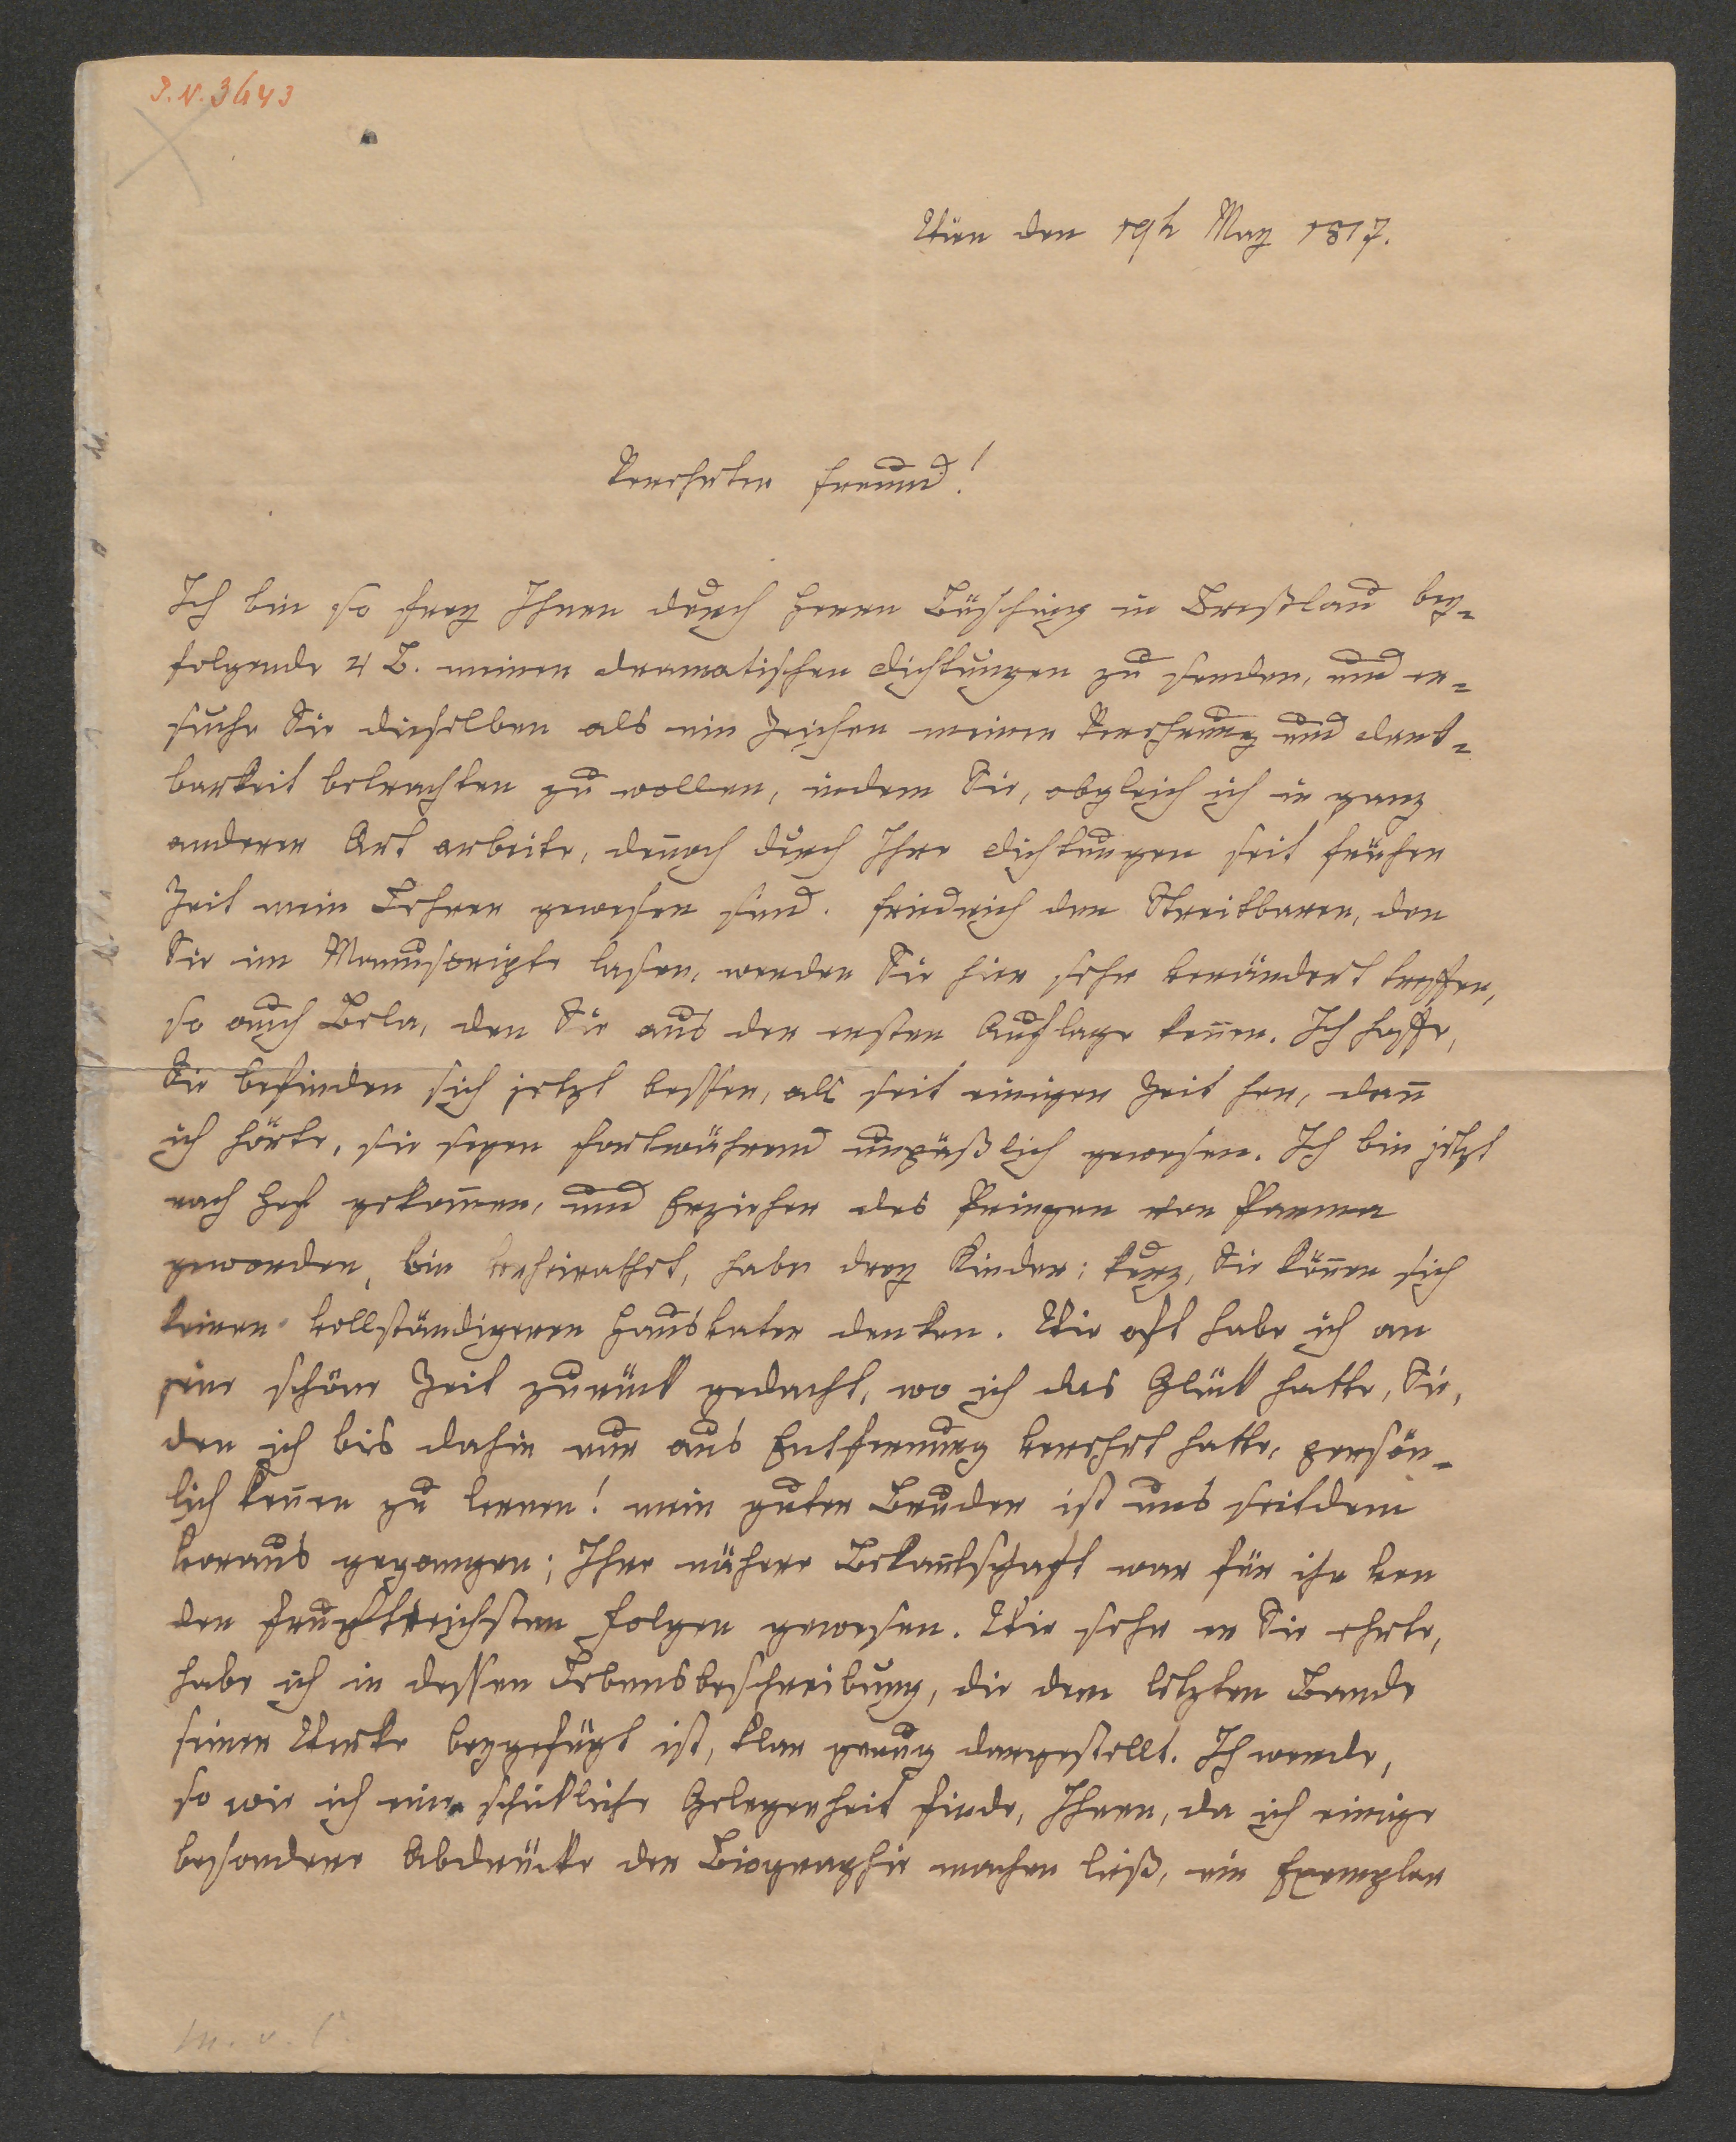 I.N. 3643
Wien den 19t May 1817.
Verehrter Freund!
Ich bin so frey Ihnen durch Herrn Büsching in Breßlau bey-
folgende 4 B. meiner dramatischen Dichtungen zu senden, und er-
suche Sie dieselben als ein Zeichen meiner Verehrung und Dank-
barkeit betrachten zu wollen, indem Sie, obgleich ich in ganz
anderer Art arbeite, deñoch durch Ihre Dichtungen seit früher
Zeit mein Lehrer gewesen sind. Friedrich den Streitbaren, den
Sie im Manuscripte lasen, werden Sie hier sehr verändert treffen,
so auch Bela, den Sie aus der ersten Auflage keñen. Ich hoffe,
Sie befinden sich jetzt besser, als seit einiger Zeit her, dañ
ich hörte, sie seyen fortwährend unpäßlich gewesen. Ich bin jetzt
nach Hof gekom̄en, und Erzieher des Prinzen von Parma
geworden, bin verheirathet, habe drey Kinder: kurz, Sie köñen sich
keinen vollständigeren Hausvater denken. Wie oft habe ich an
jene schöne Zeit zurück gedacht, wo ich das Glück hatte, Sie,
den ich bis dahin nur aus Entfernung verehrt hatte, persön-
lich keñen zu lernen! mein guter Bruder ist uns seitdem
voraus gegangen; Ihre nähere Bekañtschaft war für ihn von
den fruchtreichsten Folgen gewesen. Wie sehr er Sie ehrte,
habe ich in dessen Lebensbeschreibung, die dem letzten Bande
seiner Werke beygefügt ist, klar genug dargestellt. Ich werde,
so wie ich eine schickliche Gelegenheit finde, Ihnen, da ich einige
besondere Abdrücke der Biographie machen ließ, ein Exemplar
M. v. C.